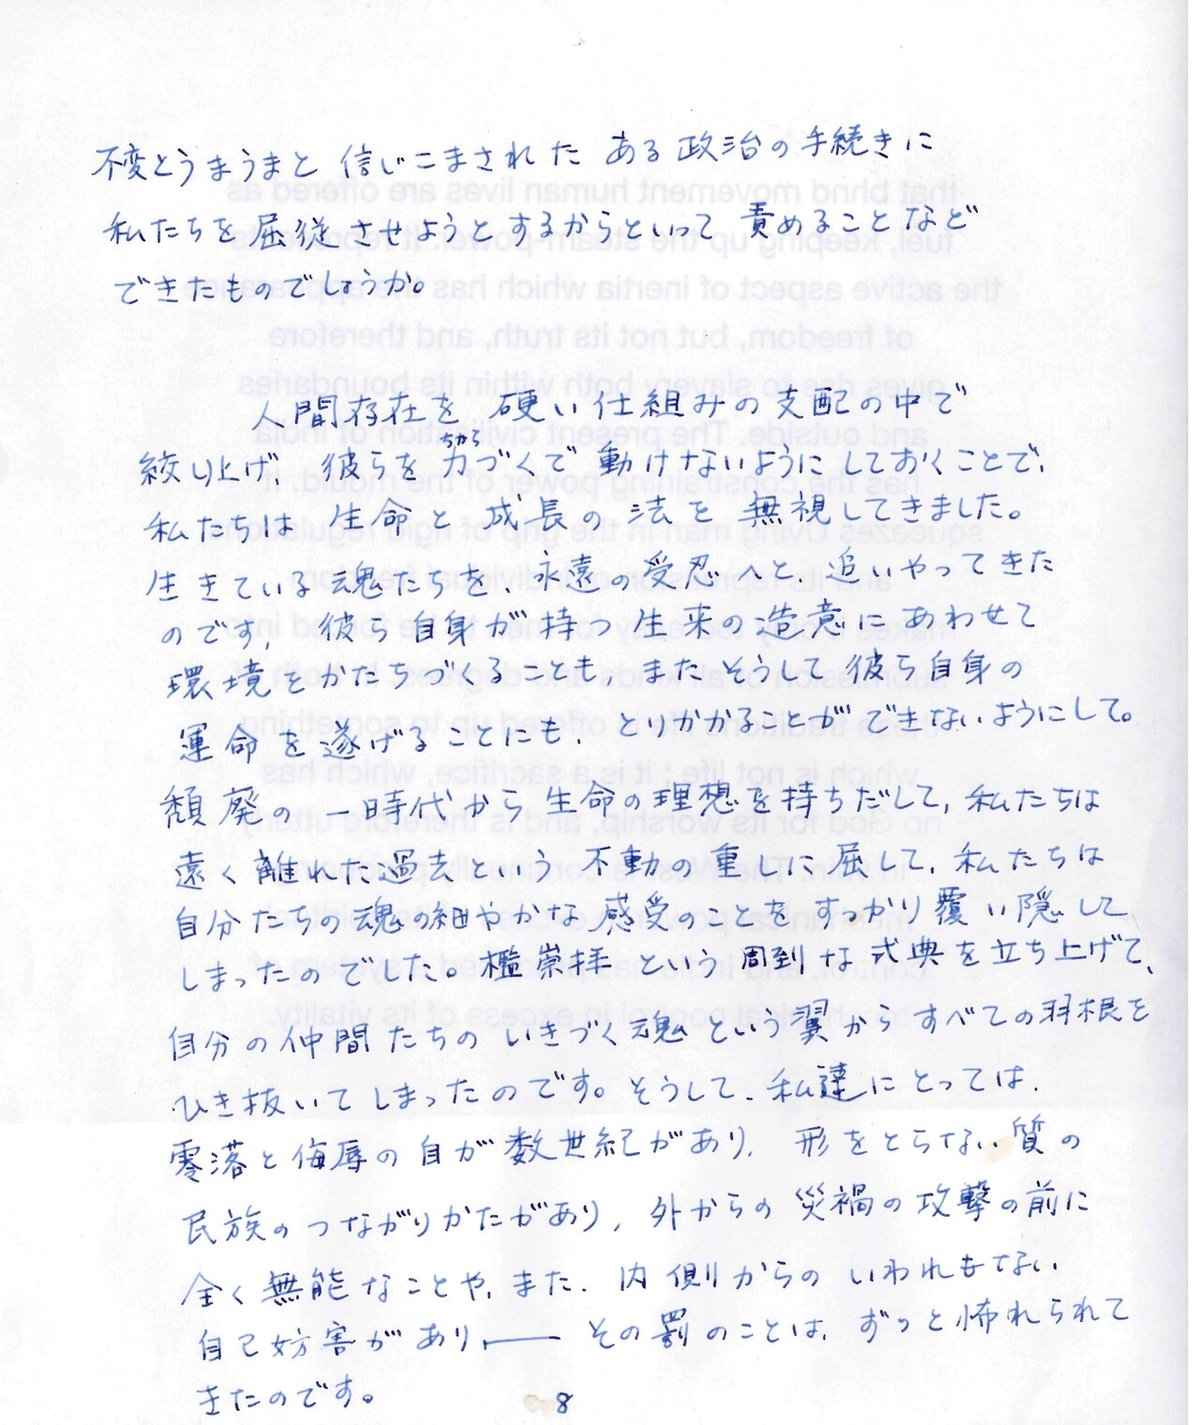 不変とうまうまと 信じこまされた ある政治の手続きに
私たちを屈従させようとするからといって 責めることなど
できたものでしょうか。
人間存在を 硬い仕組みの支配の中で
絞り上げ、彼らを力づくで動けないようにしておくことで、
ちから
私たちは 生命と 成長の 法を 無視してきました。
生きている魂たちを、永遠の受忍へと、追いやってきた
のです、彼ら自身が持つ生来の造意にあわせて
環境をかたちづくることも、またそうして彼ら自身の
運命を遂げることにも、とりかかることができないようにして。
頽廃の一時代から生命の理想を持ちだして、私たちは
遠く離れた過去という不動の重しに屈して、私たちは
自分たちの魂の細やかな感受のことをすっかり覆い隠して
しまったのでした。檻崇拝という周到な式典を立ち上げて、
自分の仲間たちのいきづく魂という翼からすべての羽根を
ひき抜いてしまったのです。そうして、私達にとっては、
零落と侮辱の自が数世紀があり、形をとらない質の
民族のつながりかたがあり、外からの災禍の攻撃の前に
全く無能なことや、また、内側からのいわれもない
自己妨害があり、── その罰のことは、ずっと怖れられて
きたのです。
8
that bhnd movement human lives are offered as
fuel, keeping up the steam-power. It represents
the active aspect of inertia which has the appearance
of freedom, but not its truth, and therefore
gives rise to slavery both within its boundaries
and outside. The present civilisation of India
has the constraining power of the mould. It
squeezes living man in the grip of rigid regulations